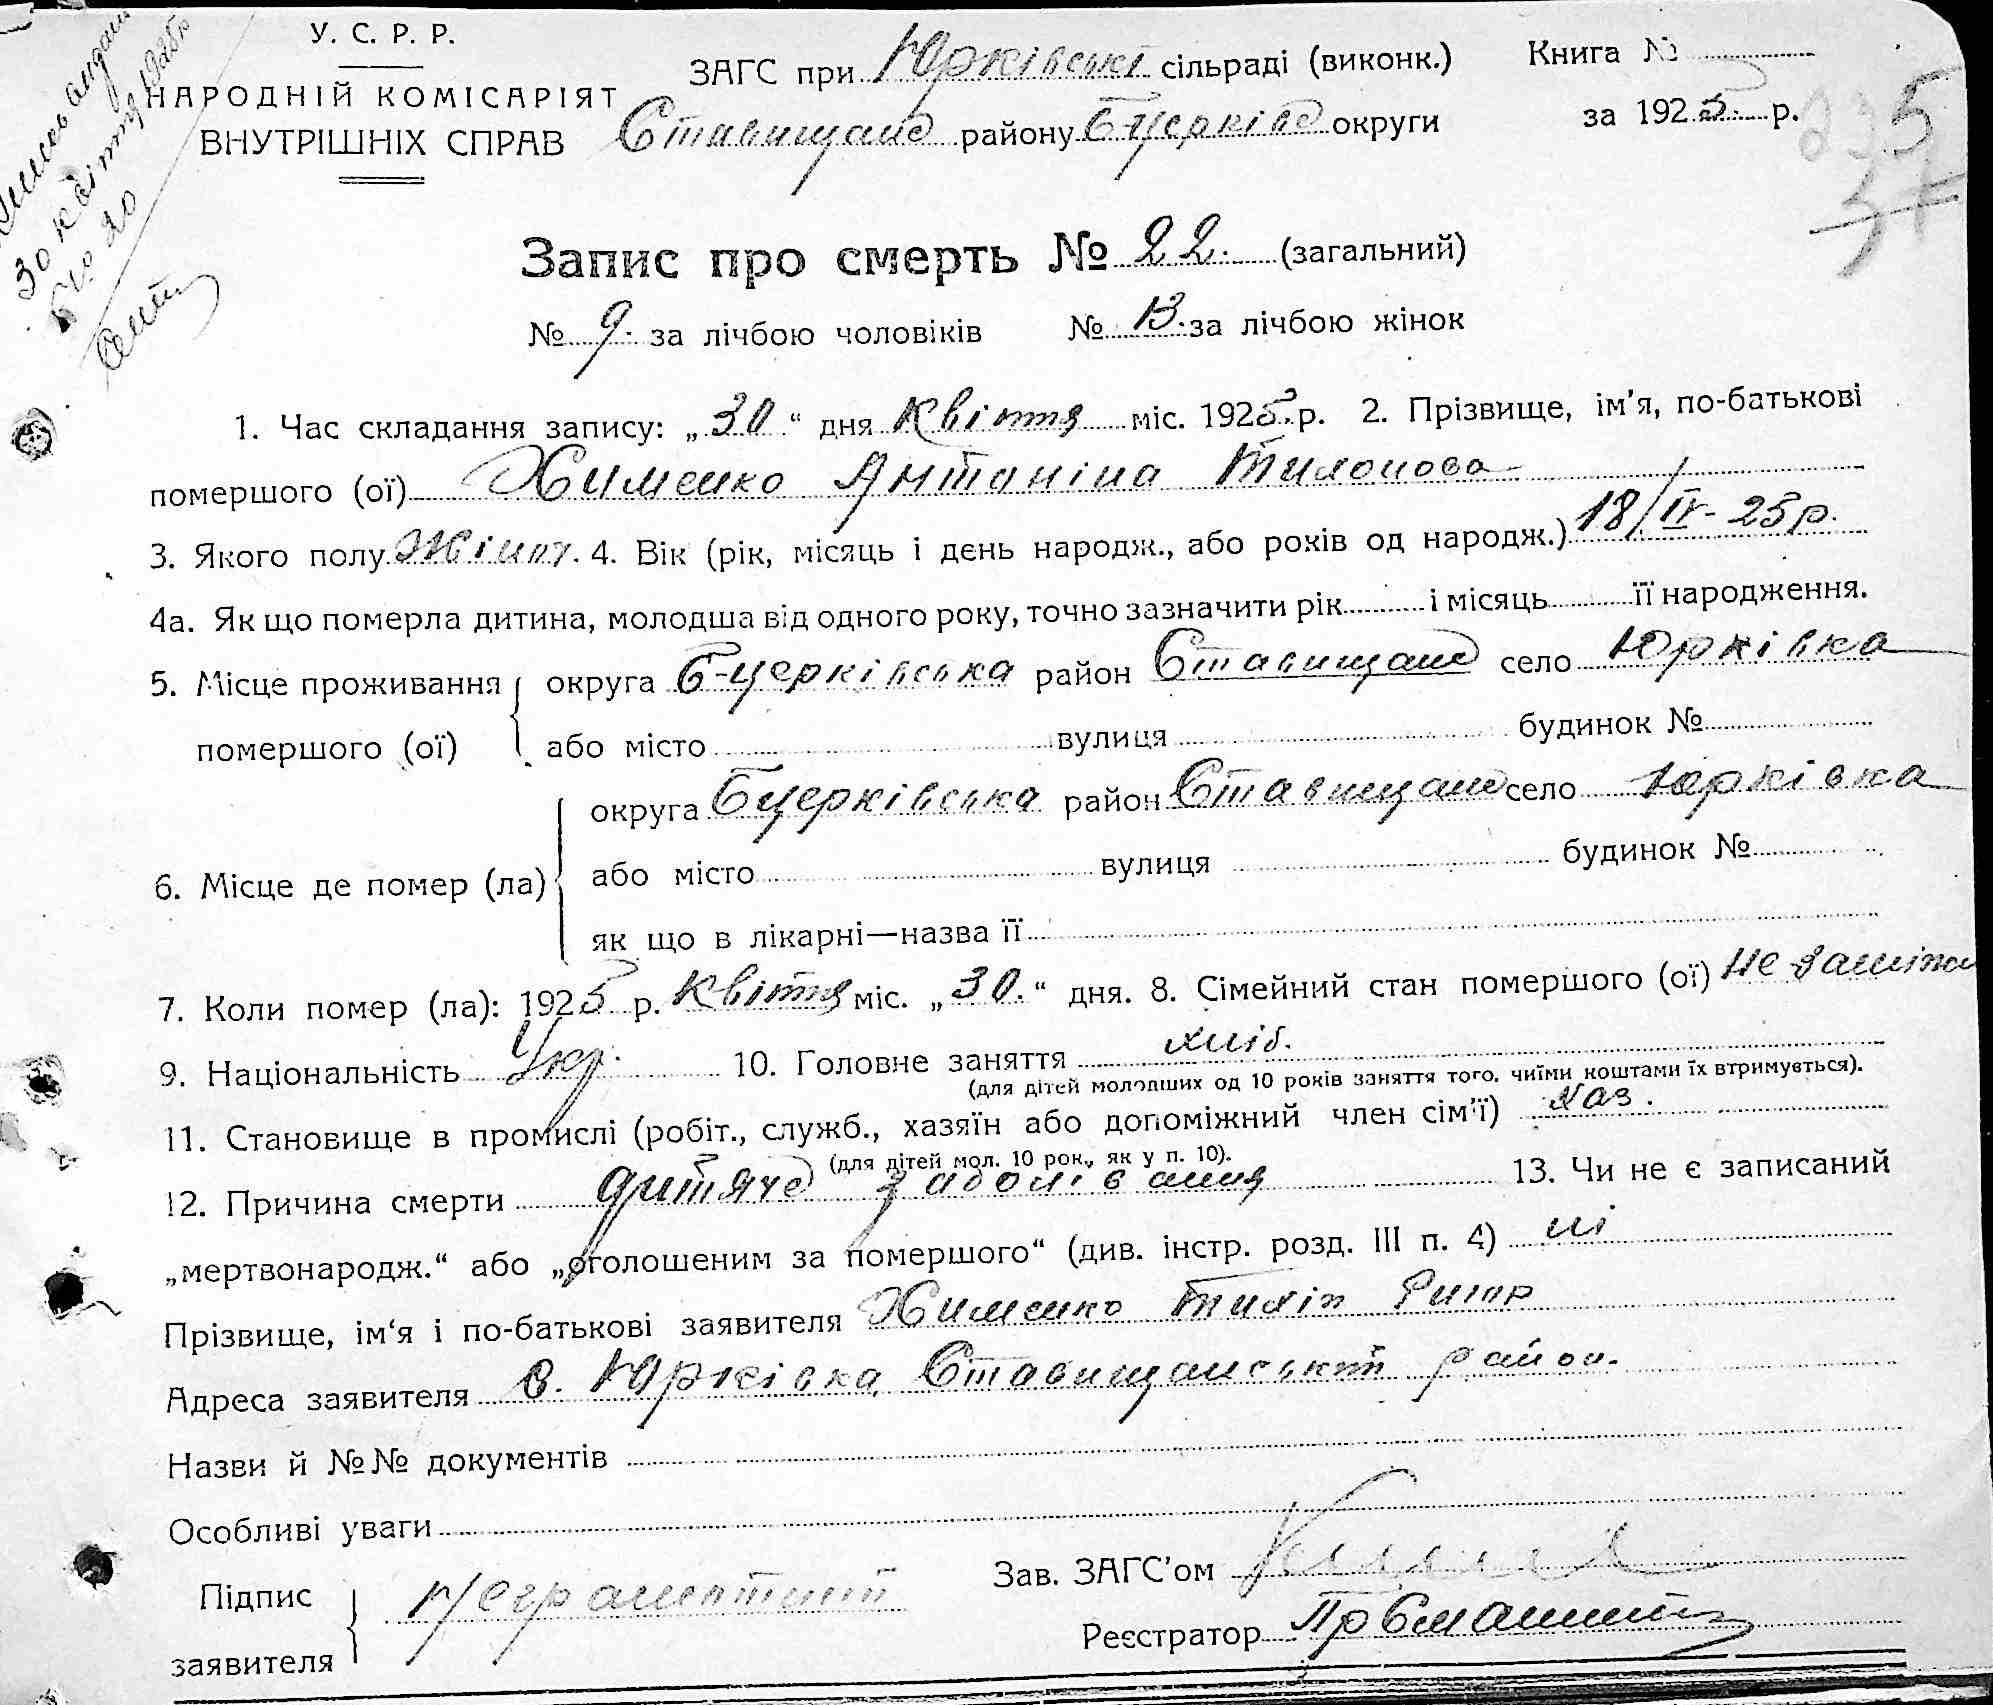 У. С. Р. Р.
НАРОДНІЙ КОМІСАРІЯТ
ВНУТРІШНІХ СПРАВ
ЗАГС при Юрківські сільраді (виконк.)
Ставищанс району Б-церківс округи
Книга №
за 1925 р.
5
30 квіття 1925 р
Запис про смерть № 22. (загальний)
№ 9. за лічбою чоловіків № 13. за лічбою жінок
1. Час складання запису: „30“ дня Квіття міс. 1925 р. 2. Прізвище, ім'я, по-батькові
помершого (ої) Хименко Антаніна Тихонова
3. Якого полу Жіноч. 4. Вік (рік, місяць і день народж., або років од народж.) 18/IV-25 р.
4а. Як що померла дитина, молодша від одного року, точно зазначити рік і місяць її народження.
5. Місце проживання округа Б-церківська район Ставищанс село Юрківка
помершого (ої) або місто вулиця будинок №
округа Бцерківська район Ставищанс село Юрківка
6. Місце де помер (ла) або місто вулиця будинок №
як що в лікарні—назва її
7. Коли помер (ла): 1925 р. Квіття міс. „30.“ дня. 8. Сімейний стан помершого (ої) не заміжн
9. Національність Укр. 10. Головне заняття хліб.
(для дітей молодших од 10 років заняття того, чиїми коштами їх втримується).
11. Становище в промислі (робіт., служб., хазяїн або допоміжний член сім'ї) хаз.
(для дітей мол. 10 рок., як у п. 10).
12. Причина смерти дитяче заболівання 13. Чи не є записаний
„мертвонародж.“ або „оголошеним за помершого“ (див. інстр. розд. III п. 4) ні
Прізвище, ім'я і по-батькові заявителя Хименко Тихін Григор
Адреса заявителя с. Юрківка Ставищанськ район.
Назви й №№ документів
Особливі уваги
Підпис заявителя Неграмотний
Зав. ЗАГС'ом
Реєстратор